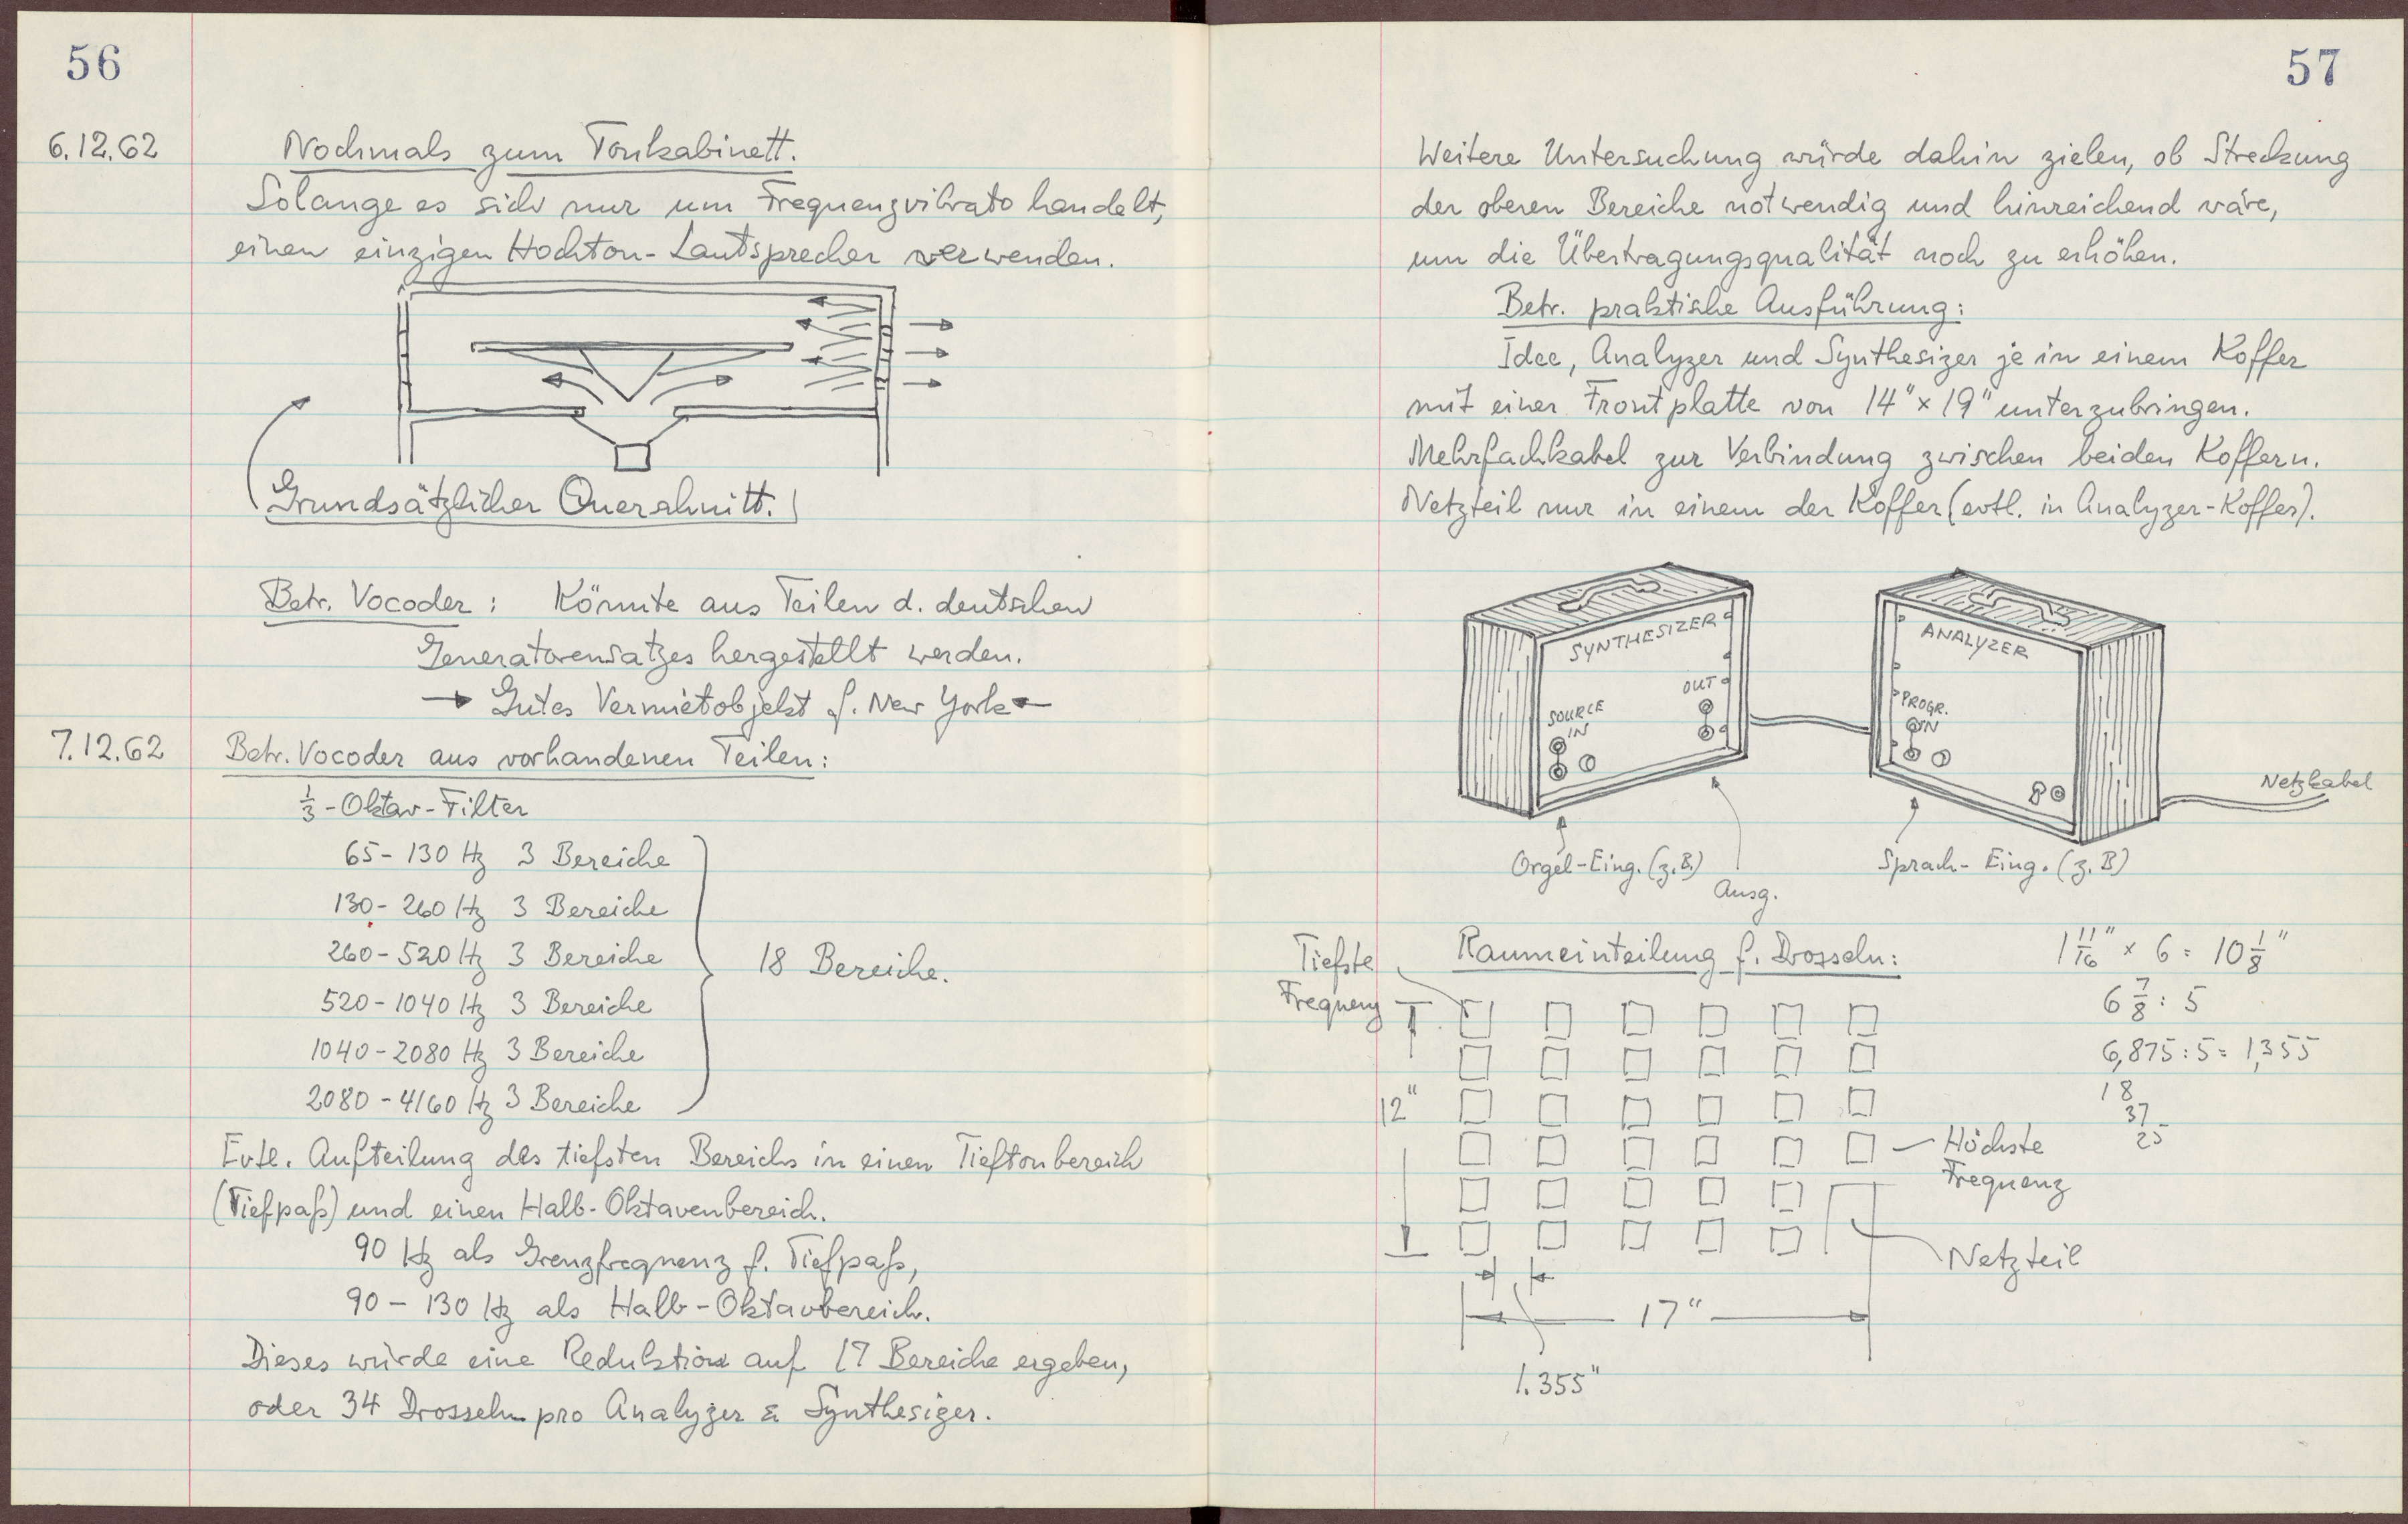 56
6.12.62
Nochmals zum Tonkabinett.
Solange es sich nur um Frequenzvibrato handelt,
einen einzigen Hochton-Lautsprecher verwenden.
Grundsätzlicher Querschnitt.
Betr. Vocoder: Könnte aus Teilen d. deutschen
Generatorensatzes hergestellt werden.
→ Gutes Vermietobjekt f. New York ←
7.12.62
Betr. Vocoder aus vorhandenen Teilen:
1/3-Oktav-Filter
65-130 Hz 3 Bereiche
130-260 Hz 3 Bereiche
260-520 Hz 3 Bereiche
520-1040 Hz 3 Bereiche
1040-2080 Hz 3 Bereiche
2080-4160 Hz 3 Bereiche
18 Bereiche.
Evtl. Aufteilung des tiefsten Bereichs in einen Tieftonbereich
(Tiefpaß) und einen Halb-Oktavenbereich.
90 Hz als Grenzfrequenz f. Tiefpaß,
90-130 Hz als Halb-Oktavbereich.
Dieses würde eine Reduktion auf 17 Bereiche ergeben,
oder 34 Drosseln pro Analyzer & Synthesizer.
57
Weitere Untersuchung würde dahin zielen, ob Streckung
der oberen Bereiche notwendig und hinreichend wäre,
um die Übertragungsqualität noch zu erhöhen.
Betr. praktische Ausführung:
Idee, Analyzer und Synthesizer je in einem Koffer
mit einer Frontplatte von 14" × 19" unterzubringen.
Mehrfachkabel zur Verbindung zwischen beiden Koffern.
Netzteil nur in einem der Koffer (evtl. in Analyzer-Koffer).
SYNTHESIZER
OUT
SOURCE
IN
ANALYZER
PROGR.
IN
Netzkabel
Orgel-Eing. (z.B.)
Ausg.
Sprach-Eing. (z.B)
Tiefste
Frequenz
Raumeinteilung f. Drosseln:
1 11/16" × 6 = 10 1/8"
6 7/8 : 5
6,875 : 5 = 1,355
18
37
25
12"
Höchste
Frequenz
Netzteil
17"
1.355"